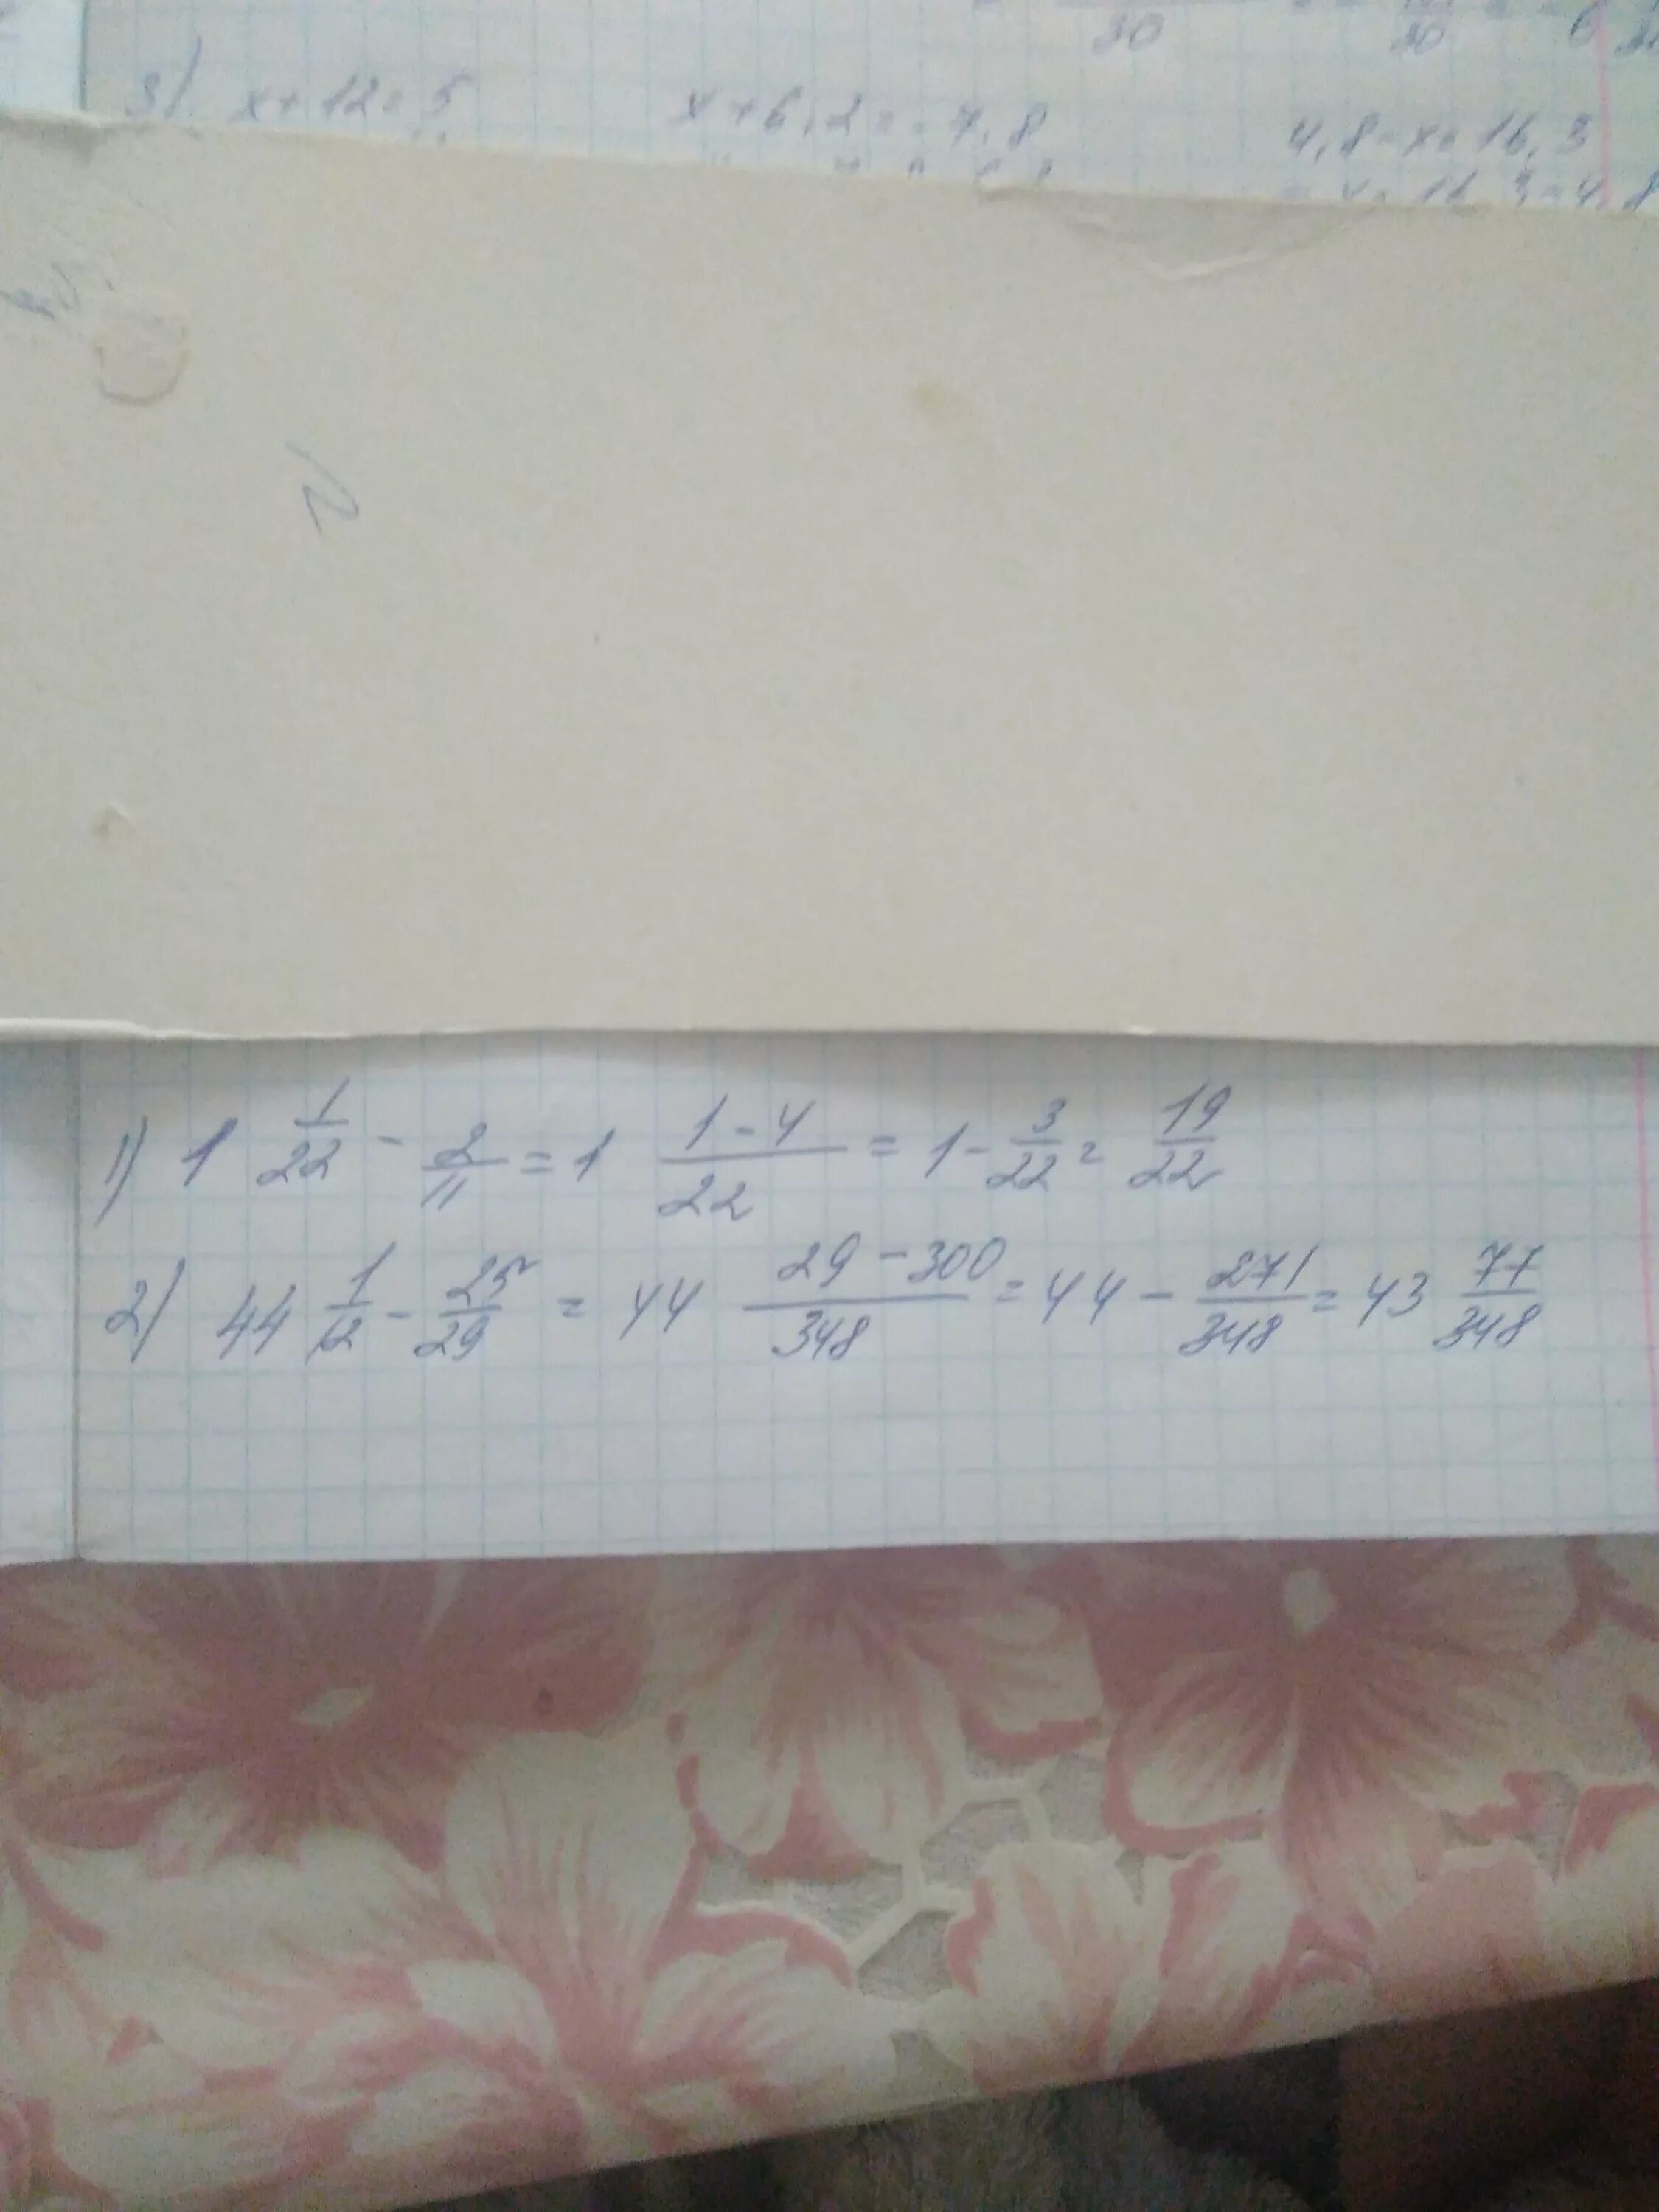 30 30 6
3) x+12=5 x+6,2=-7,8 4,8-x=16,3
1) 1 1/22 - 2/11 = 1 (1-4)/22 = 1 - 3/22 = 19/22
2) 44 1/12 - 25/29 = 44 (29-300)/348 = 44 - 271/348 = 43 77/348